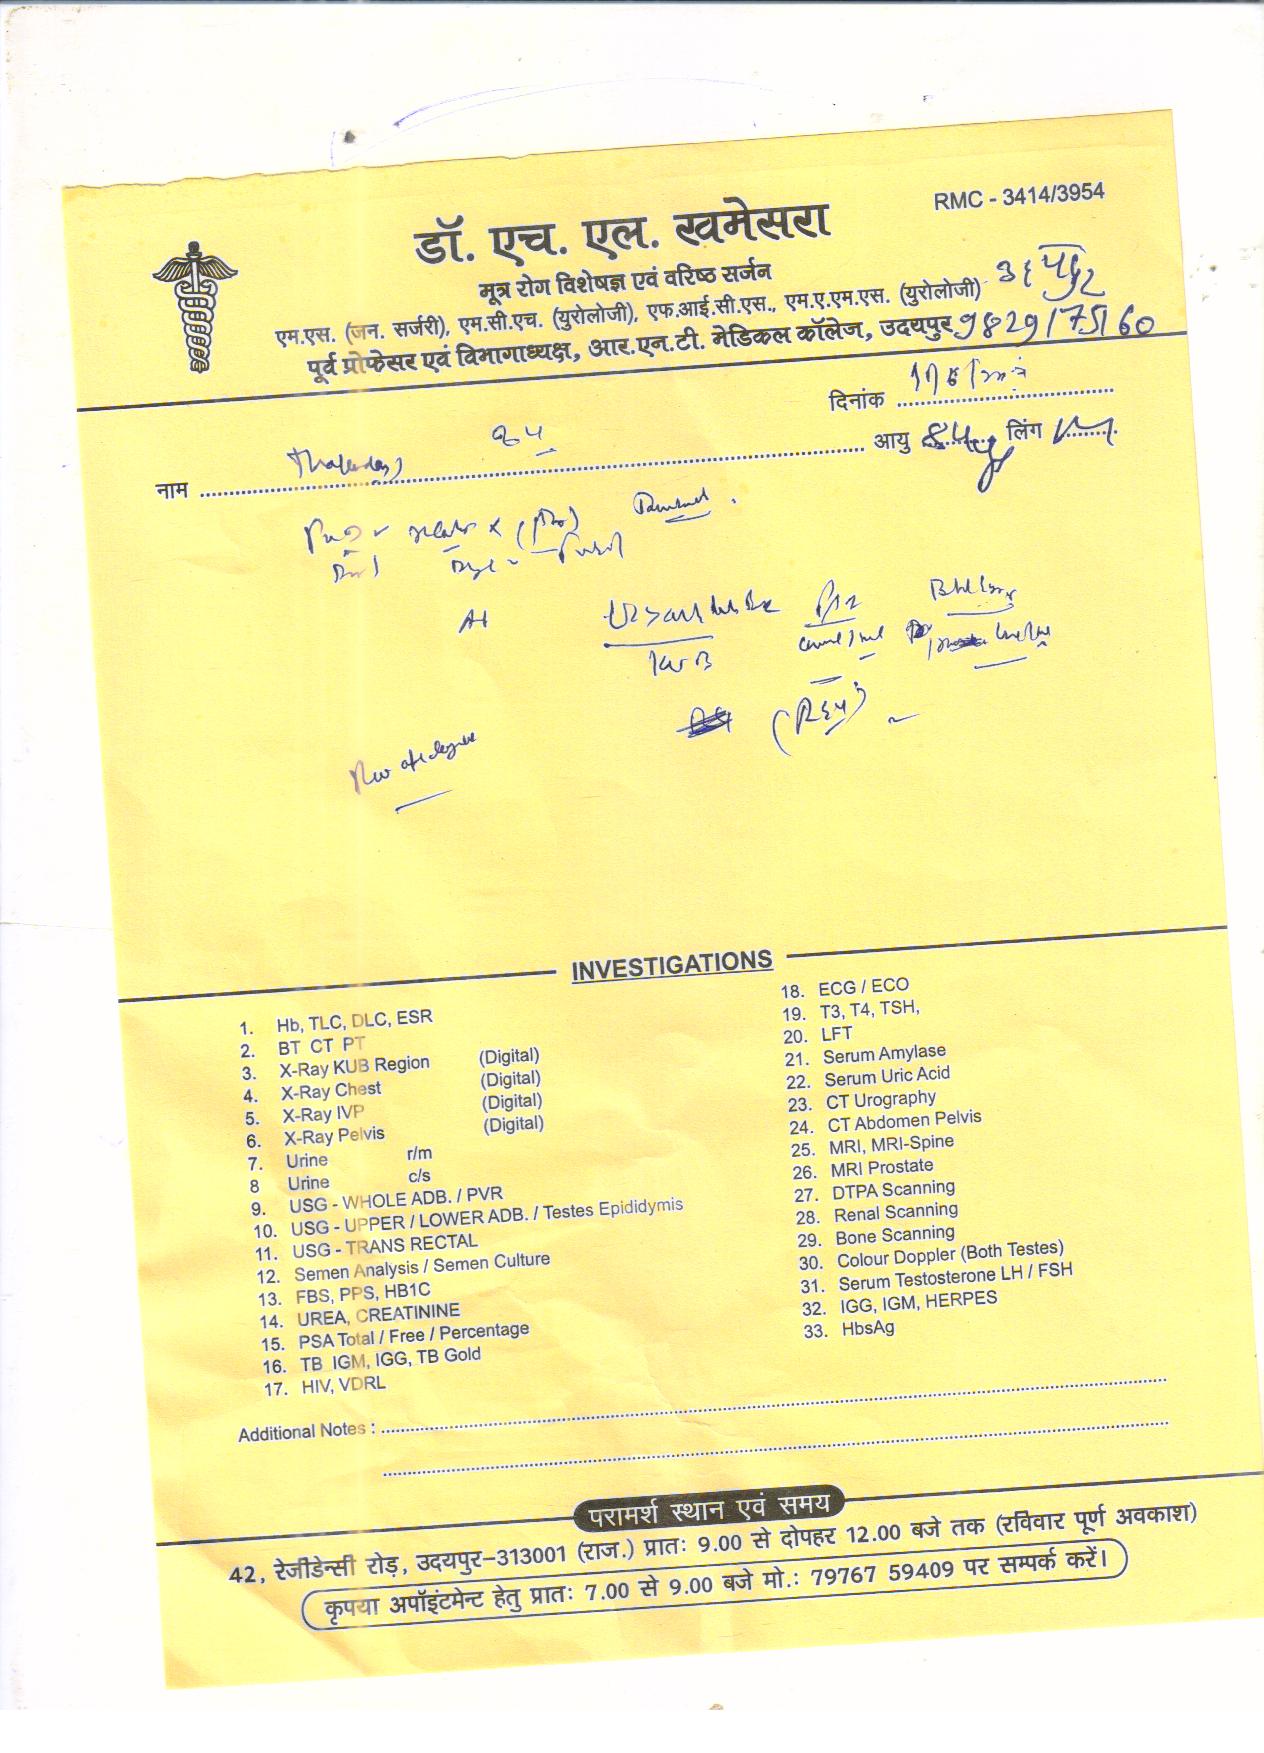 RMC - 3414/3954
डॉ. एच. एल. खमेसरा
मूत्र रोग विशेषज्ञ एवं वरिष्ठ सर्जन
एम.एस. (जन. सर्जरी), एम.सी.एच. (युरोलोजी), एफ.आई.सी.एस., एम.ए.एम.एस. (युरोलोजी)
पूर्व प्रोफेसर एवं विभागाध्यक्ष, आर.एन.टी. मेडिकल कॉलेज, उदयपुर
दिनांक
नाम आयु लिंग M
KUB
INVESTIGATIONS
1. Hb, TLC, DLC, ESR
2. BT CT PT
3. X-Ray KUB Region (Digital)
4. X-Ray Chest (Digital)
5. X-Ray IVP (Digital)
6. X-Ray Pelvis (Digital)
7. Urine r/m
8 Urine c/s
9. USG - WHOLE ADB. / PVR
10. USG - UPPER / LOWER ADB. / Testes Epididymis
11. USG - TRANS RECTAL
12. Semen Analysis / Semen Culture
13. FBS, PPS, HB1C
14. UREA, CREATININE
15. PSA Total / Free / Percentage
16. TB IGM, IGG, TB Gold
17. HIV, VDRL
18. ECG / ECO
19. T3, T4, TSH,
20. LFT
21. Serum Amylase
22. Serum Uric Acid
23. CT Urography
24. CT Abdomen Pelvis
25. MRI, MRI-Spine
26. MRI Prostate
27. DTPA Scanning
28. Renal Scanning
29. Bone Scanning
30. Colour Doppler (Both Testes)
31. Serum Testosterone LH / FSH
32. IGG, IGM, HERPES
33. HbsAg
Additional Notes :
परामर्श स्थान एवं समय
42, रेजीडेन्सी रोड़, उदयपुर-313001 (राज.) प्रातः 9.00 से दोपहर 12.00 बजे तक (रविवार पूर्ण अवकाश)
कृपया अपॉइंटमेन्ट हेतु प्रातः 7.00 से 9.00 बजे मो.: 79767 59409 पर सम्पर्क करें।